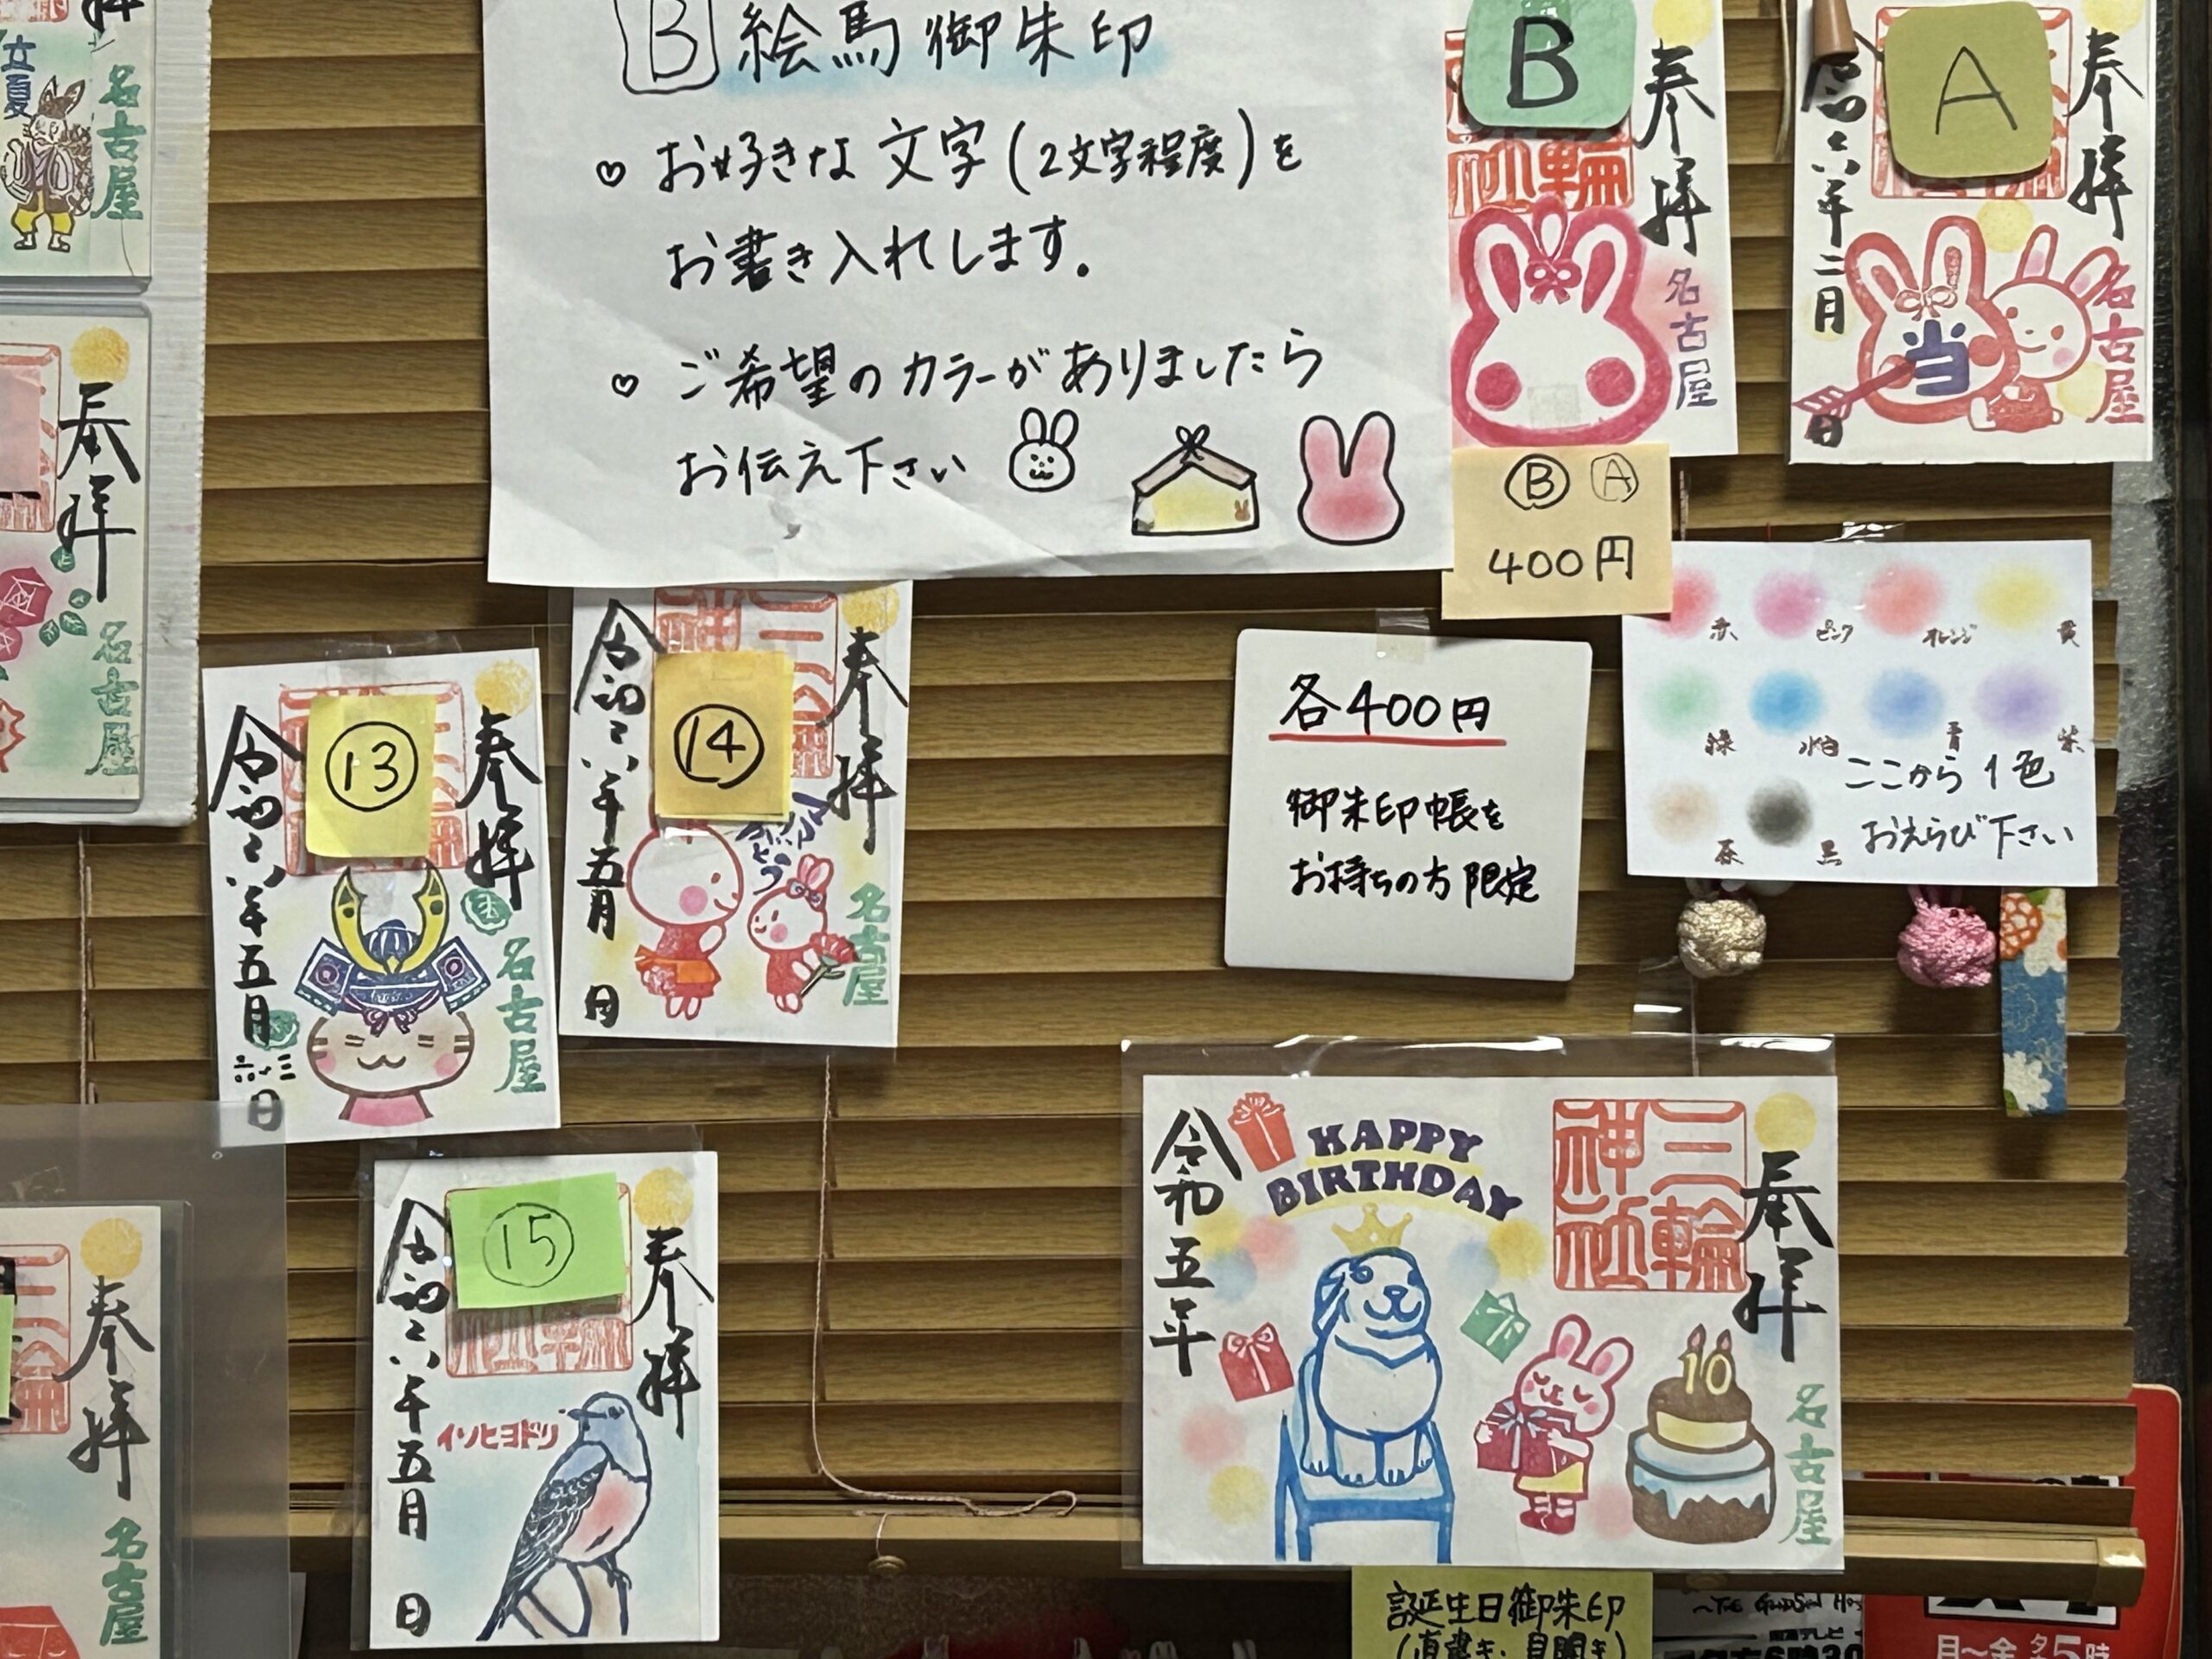 B 絵馬御朱印
♡ お好きな文字(2文字程度)を
お書き入れします。
♡ ご希望のカラーがありましたら
お伝え下さい
立夏
名古屋
奉拝
名古屋
B
奉拝
名古屋
A
奉拝
令和六年二月
日
当
名古屋
Ⓑ Ⓐ
400円
赤 ピンク オレンジ 黄
緑 水色 青 紫
茶 黒
ここから1色
おえらび下さい
各400円
御朱印帳を
お持ちの方限定
⑬
奉拝
令和六年五月
日
名古屋
⑭
奉拝
令和六年五月
日
名古屋
⑮
奉拝
令和六年五月
日
イソヒヨドリ
奉拝
名古屋
奉拝
三輪神社
HAPPY
BIRTHDAY
令和五年
10
名古屋
誕生日御朱印
(直書き・見開き)
月〜金 夕5時